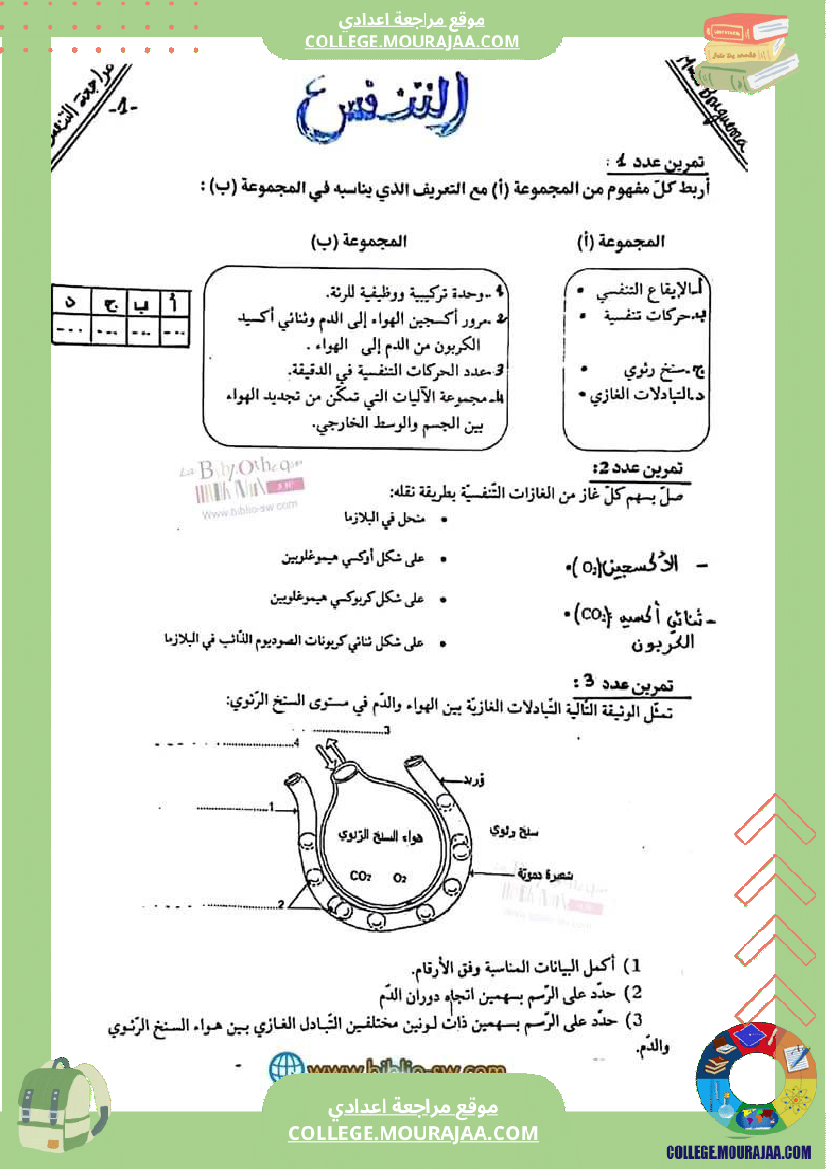 موقع مراجعة اعدادي
COLLEGE.MOURAJAA.COM
مراجعة
-1-
التنفس
تمرين عدد 1 :
أربط كلّ مفهوم من المجموعة (أ) مع التعريف الذي يناسبه في المجموعة (ب) :
المجموعة (أ)
المجموعة (ب)
أ.الإيقاع التنفسي •
ب.حركات تنفسية •
ج.سنخ رئوي •
د.التبادلات الغازي •
1.وحدة تركيبية ووظيفية للرئة.
2.مرور أكسجين الهواء إلى الدم وثنائي أكسيد
الكربون من الدم إلى الهواء .
3.عدد الحركات التنفسية في الدقيقة.
4.مجموعة الآليات التي تمكّن من تجديد الهواء
بين الجسم والوسط الخارجي.
أ ب ج د
... ... ... ...
تمرين عدد2:
صلّ بسهم كلّ غاز من الغازات التّنفسيّة بطريقة نقله:
• منحل في البلازما
• على شكل أوكسي هيموغلوبين
• على شكل كربوكسي هيموغلوبين
• على شكل ثنائي كربونات الصوديوم الذّائب في البلازما
- الأكسجين (O₂) •
- ثنائي أكسيد (CO₂) •
الكربون
La Bibliotheque
www.biblio-sw.com
تمرين عدد 3 :
تمثّل الوثيقة التّالية التّبادلات الغازيّة بين الهواء والدّم في مستوى السنخ الرّئوي:
3....................
4....................
وريد
1....................
هواء السنخ الرّئوي
سنخ رئوي
CO₂ O₂
شعيرة دموية
2....................
1) أكمل البيانات المناسبة وفق الأرقام.
2) حدّد على الرّسم بسهمين اتجاه دوران الدّم
3) حدّد على الرّسم بسهمين ذات لونين مختلفين التّبادل الغازي بين هواء السنخ الرّئوي
والدّم.
www.biblio-sw.com
موقع مراجعة اعدادي
COLLEGE.MOURAJAA.COM
COLLEGE.MOURAJAA.COM